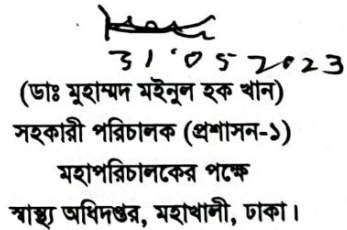 31.05.2023
(ডাঃ মুহাম্মদ মইনুল হক খান)
সহকারী পরিচালক (প্রশাসন-১)
মহাপরিচালকের পক্ষে
স্বাস্থ্য অধিদপ্তর, মহাখালী, ঢাকা।